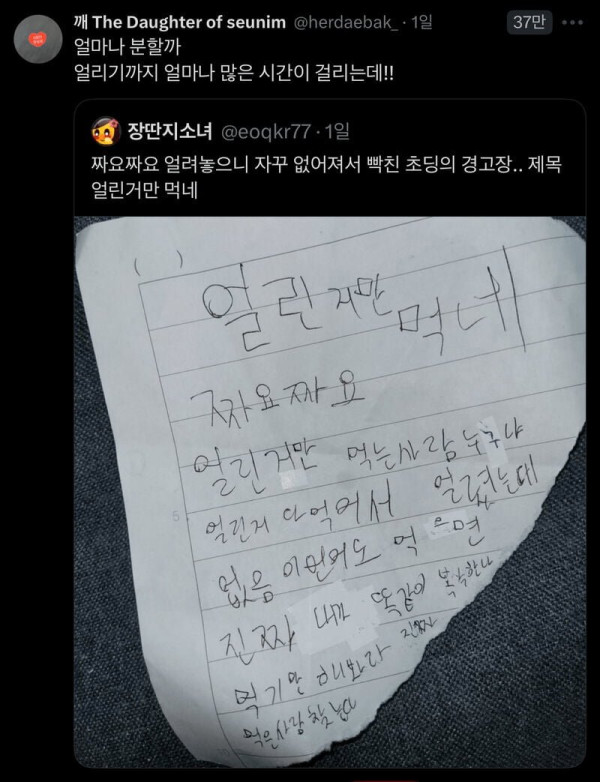 깨 The Daughter of seunim @herdaebak_ · 1일
37만
얼마나 분할까
얼리기까지 얼마나 많은 시간이 걸리는데!!
장딴지소녀 @eoqkr77 · 1일
짜요짜요 얼려놓으니 자꾸 없어져서 빡친 초딩의 경고장.. 제목
얼린거만 먹네
( )
얼린거만 먹네
짜요짜요
얼린거만 먹는사람누구냐
얼린거 다먹어서 얼렸는데
없음 이번에도 먹으면
진짜 내가 똑같이 복수한다
먹기만 해봐라 진짜
먹은사람